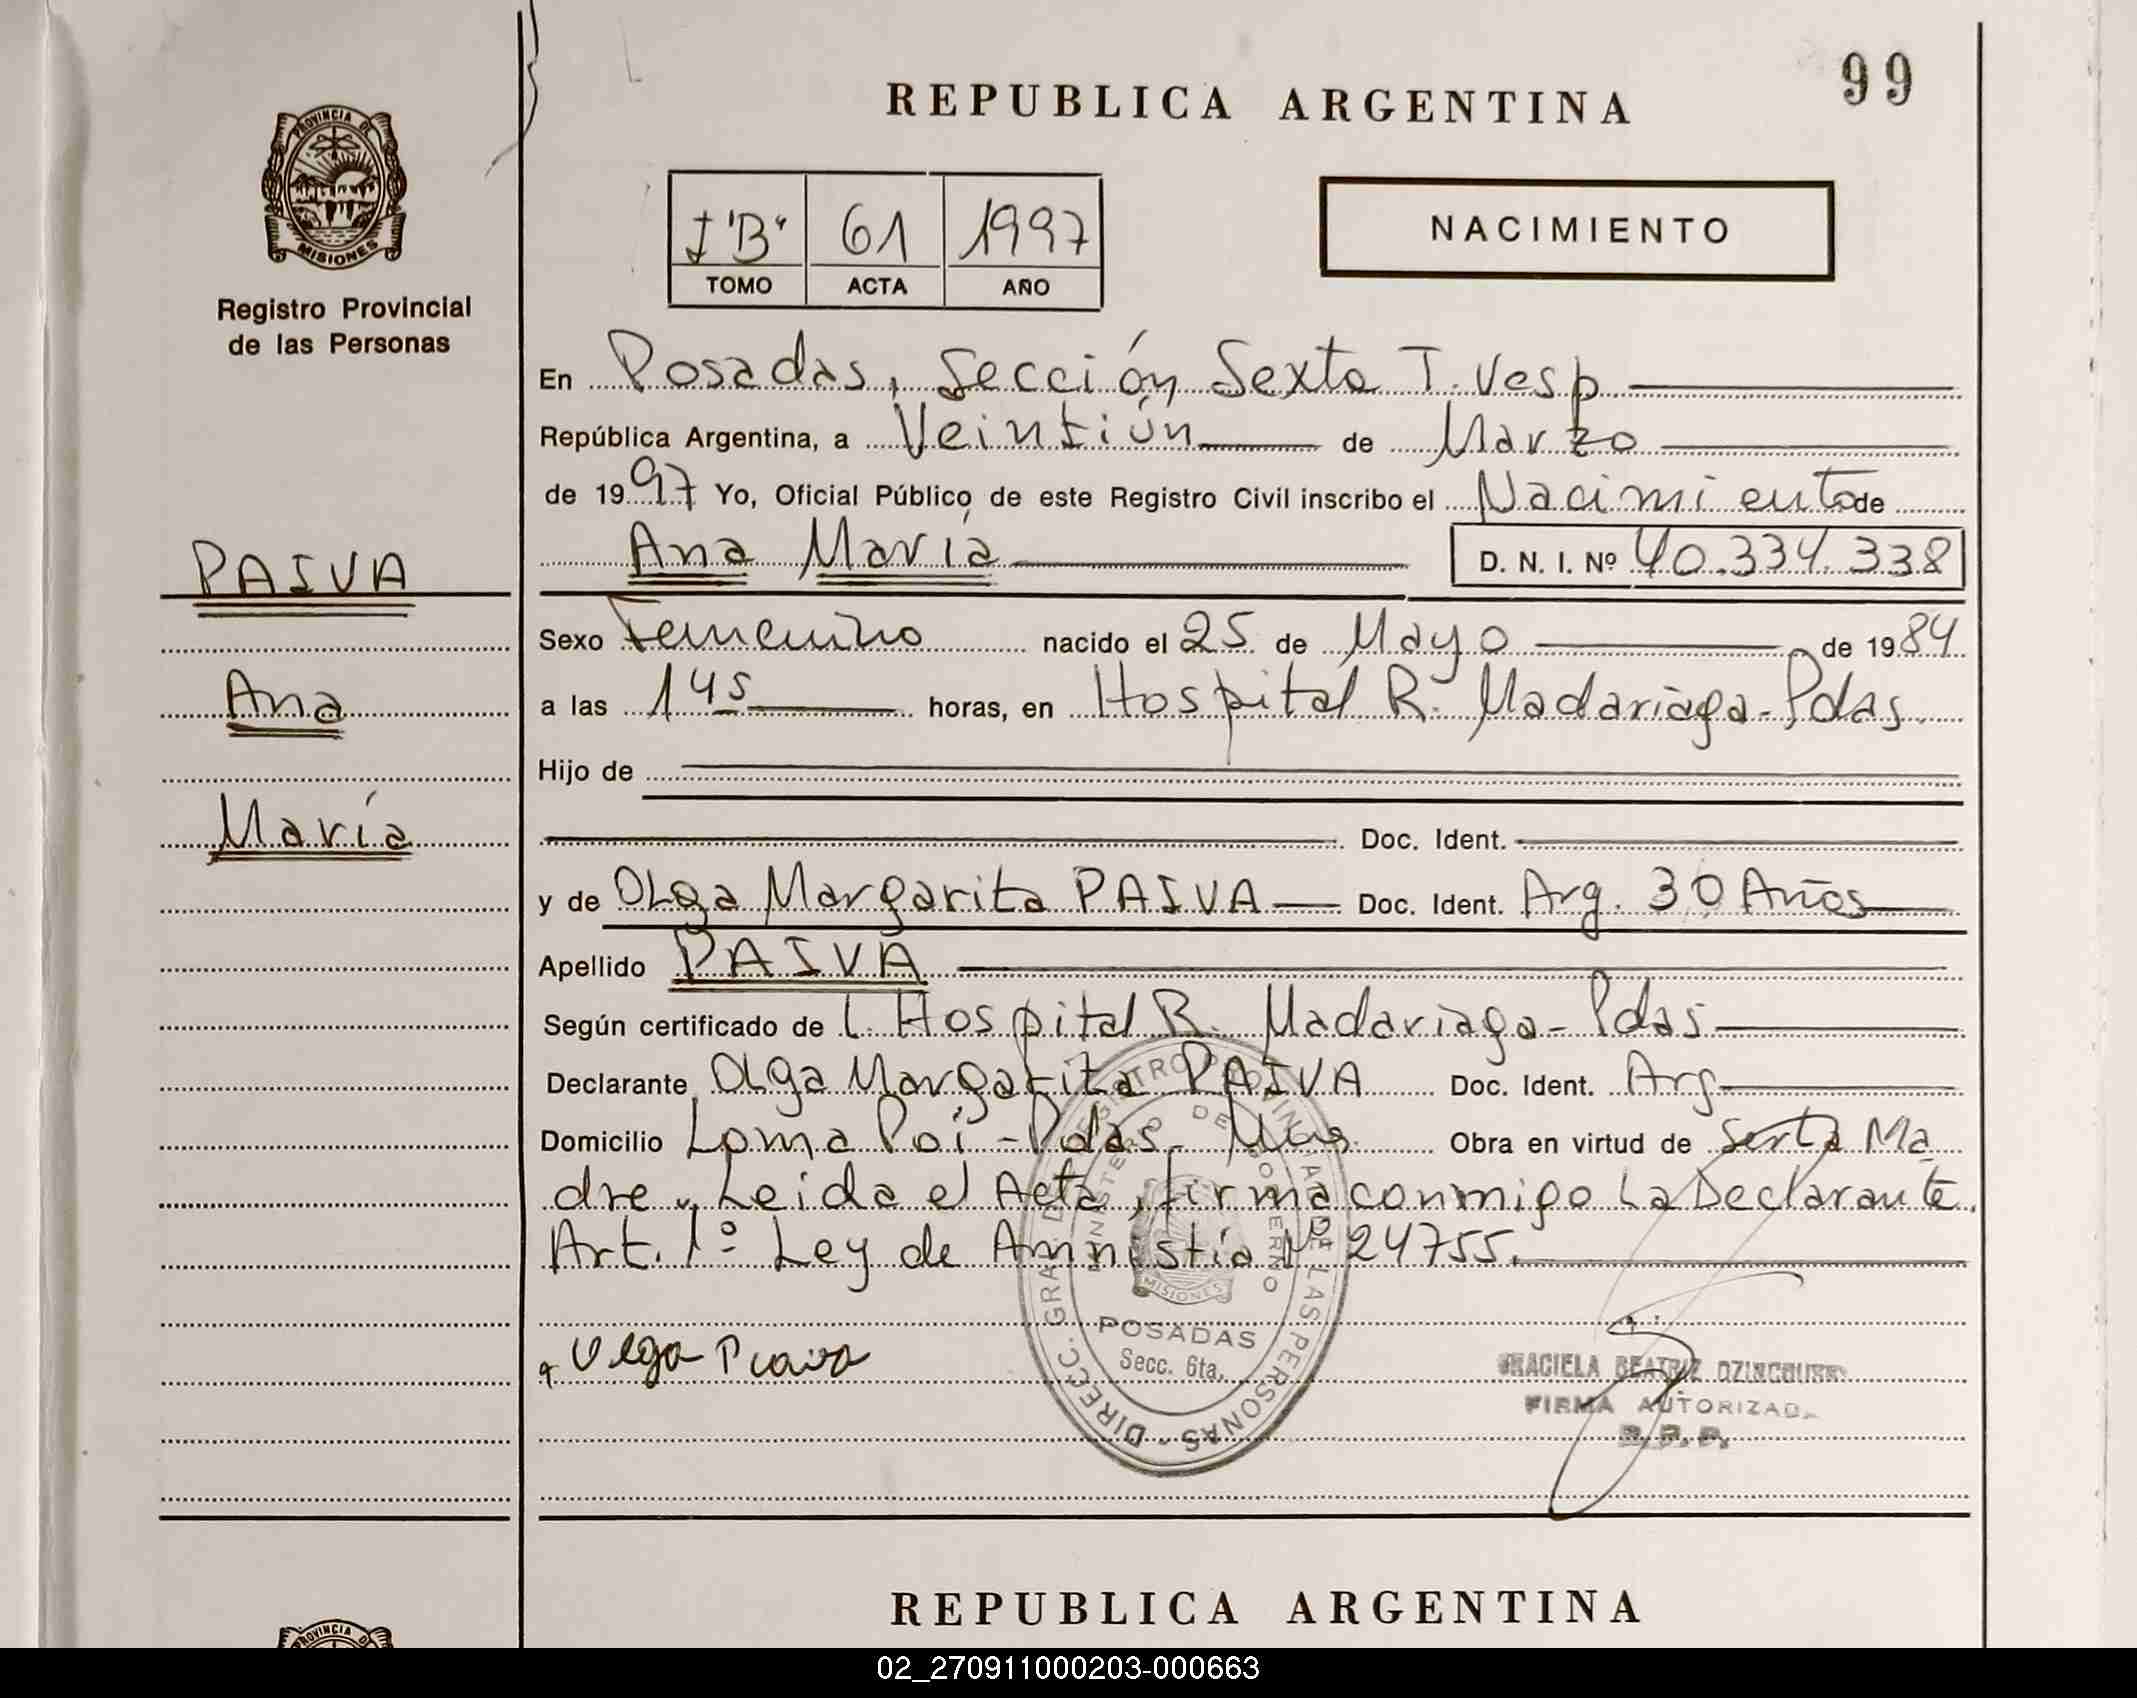 REPUBLICA ARGENTINA
99
PROVINCIA DE
MISIONES
Registro Provincial
de las Personas
I "B" 61 1997
TOMO ACTA AÑO
NACIMIENTO
En Posadas, Sección Sexta T. Vesp
República Argentina, a Veintiún de Marzo
de 1997 Yo, Oficial Público de este Registro Civil inscribo el Nacimiento de
Ana María D. N. I. Nº 40.334.338
PAIVA
Ana
María
Sexo Femenino nacido el 25 de Mayo de 1984
a las 1 45 horas, en Hospital R. Madariaga - Pdas.
Hijo de
Doc. Ident.
y de OLga Margarita PAIVA Doc. Ident. Arg. 30 Años
Apellido PAIVA
Según certificado de l. Hospital R. Madariaga - Pdas
Declarante OLga Margarita PAIVA Doc. Ident. Arg
Domicilio Loma Poí - Pdas - Mns. Obra en virtud de ser La Ma
dre. Leida el Acta, firma conmigo La Declarante.
Art. 1º Ley de Amnistía Nº 24755.
DIRECC. GRAL. DEL REGISTRO PROVINCIAL DE LAS PERSONAS
MINISTERIO DE GOBIERNO
MISIONES
POSADAS
Secc. 6ta.
GRACIELA BEATRIZ
FIRMA AUTORIZADA
R. P. P.
REPUBLICA ARGENTINA
PROVINCIA D
02_270911000203-000663